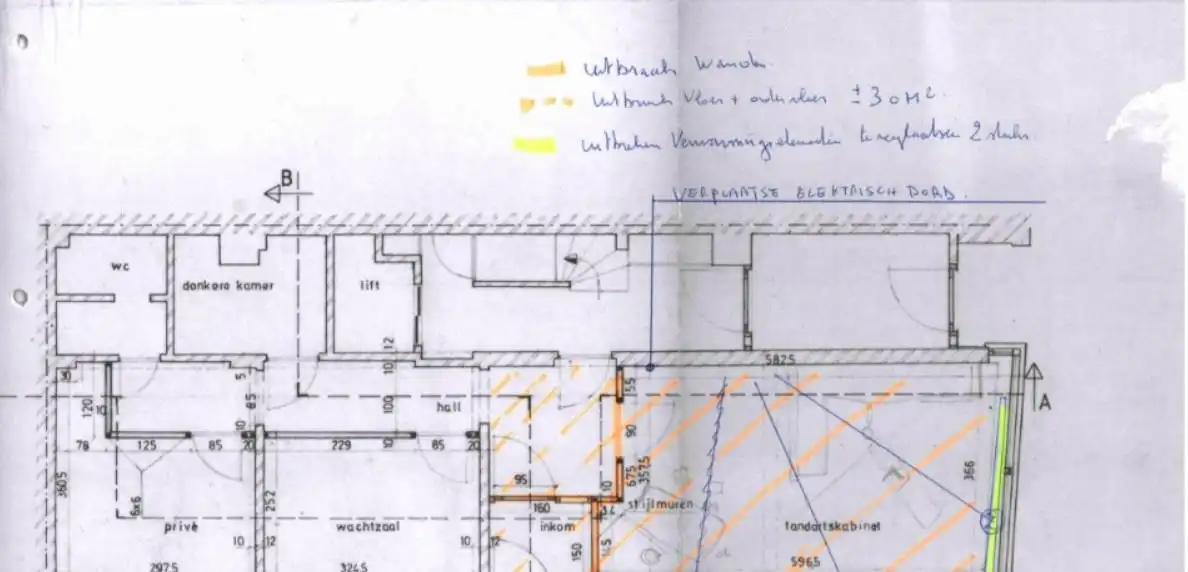 uitbraak wanden
uitbraak vloer + ondervloer ± 30 M²
uitbreken Verwarmingselementen te verplaatsen 2 stuks
B
VERPLAATSE ELEKTRISCH BORD.
wc
donkere kamer
lift
12
5825
30
5
10
155
A
120
15
85
100
hall
90
10
78
125
85
20
229
10
85
20
95
675
3575
366
3605
252
160
10
34
stijlmuren
6x6
privé
wachtzaal
inkom
tandartskabinet
10
12
10
12
150
2975
3245
5965